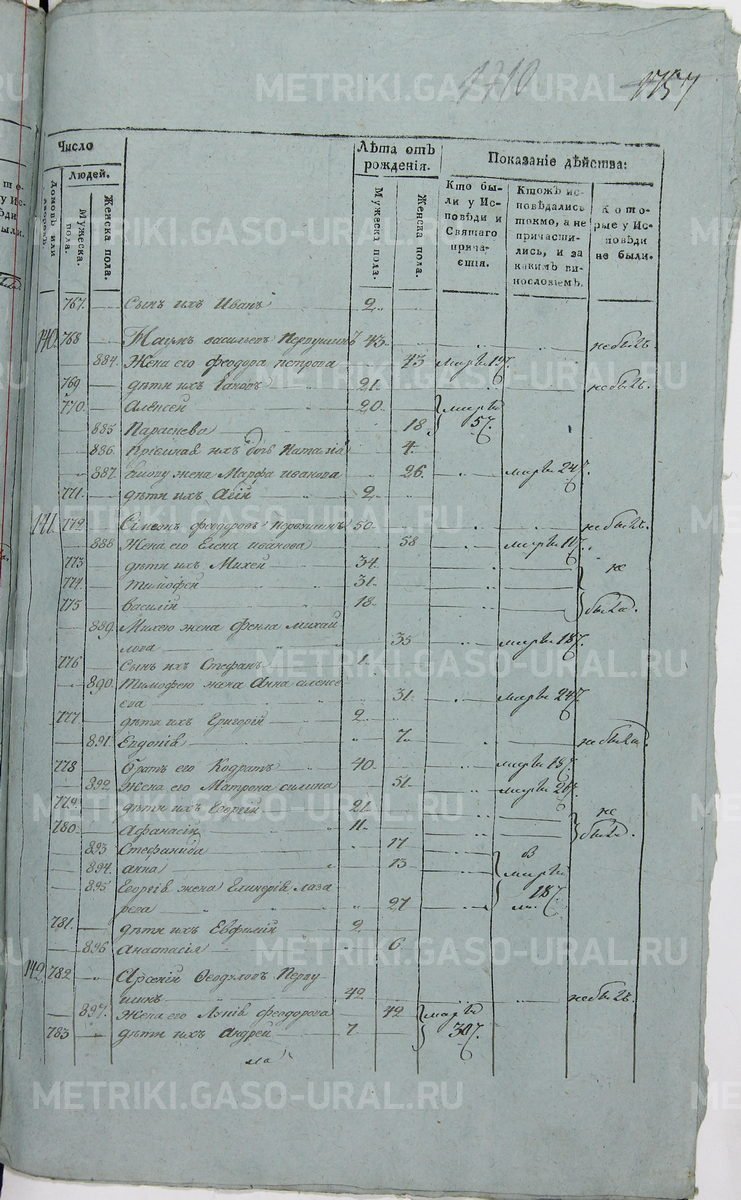 METRIKI.GASO-URAL.RU
1710
Число
Людей.
Мужеска пола.
Женска пола.
Лѣта отъ рожденія.
Мужеска пола.
Женска пола.
Показаніе дѣйства:
Кто бы-
ли у Ис-
повѣди и
Святаго
прича-
щенія.
Ктожъ ис-
повѣдались
токмо, а не
причасти-
лись, и за
какимъ ви-
нословіемъ.
Кото-
рые у Ис-
повѣди
не были.
767. Сынъ ихъ Иванъ 2
140. 768 васильевъ Первушинъ 43 небылъ.
884. Жена его феодора петрова 43 марта
769 дѣти ихъ Іаковъ 21. небылъ.
770. Алексей 20 марта
885 Параскева 18 5
886. ихъ дочь Наталія 4.
887. жена Марфа иванова 26. марта 24
771. дѣти ихъ 2
141. 772 феодоровъ 50. небылъ.
888 Жена его Елена иванова 58 марта
773 дѣти ихъ Михей 34. не
774 Тимофей 31.
775 Василій 18 были.
889. Михею жена Фекла Михай
лова 35 марта 18
776 Сынъ ихъ Стефанъ 1.
890. Тимофею жена Анна алексе
ева 31. марта 24
777 дѣти ихъ Григорій 2
891. Евдокія 7 небыла.
778 Братъ его Кодратъ 40. марта
892 Жена его Матрона силина 51 марта
779 дѣти ихъ Георгій 21. не
780 Афанасій 11. были.
893 Стефанида 17 в
894. анна 13 марта
895 Георгія жена лаза
рева 27 18
781 дѣти ихъ Евфимій 2
896 Анастасія 6
142 782 Арсеній Перву-
шинъ 42 небылъ
897. Жена его феодорова 42 марта
783 дѣти ихъ Андрей 7 30